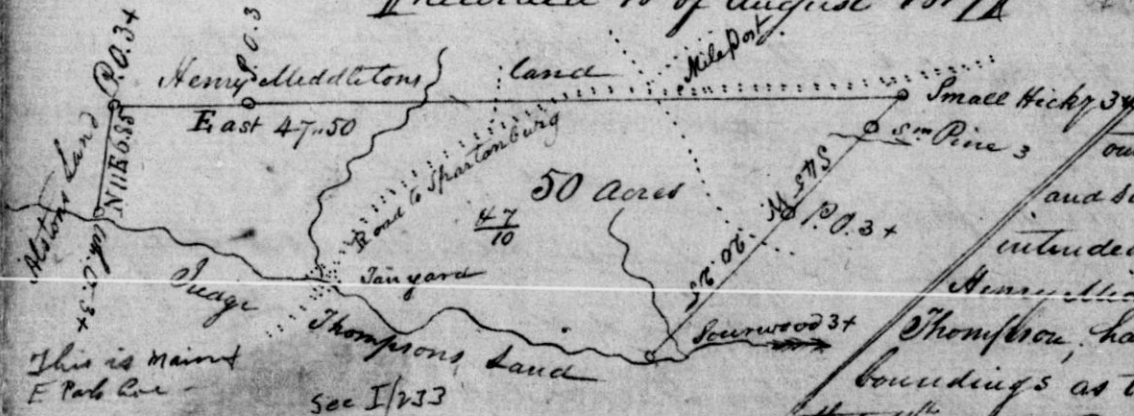 Recorded 18 of August
P.O.3+
P.O.3
Henry Middletons land
Mile Post
East 47..50
Small Hick'y 3+
Sm Pine 3
Alstons Land
N11E 6.85
Road to Spartonburg
50 Acres
47/10
S45W 20.25
P.O.3+
P.O.3+
Judge
Tanyard
Thompsons Land
Sourwood 3+
This is main &
E Park Ave
See I/233
and
intended
Henry Mid
Thompson, ha
boundings as